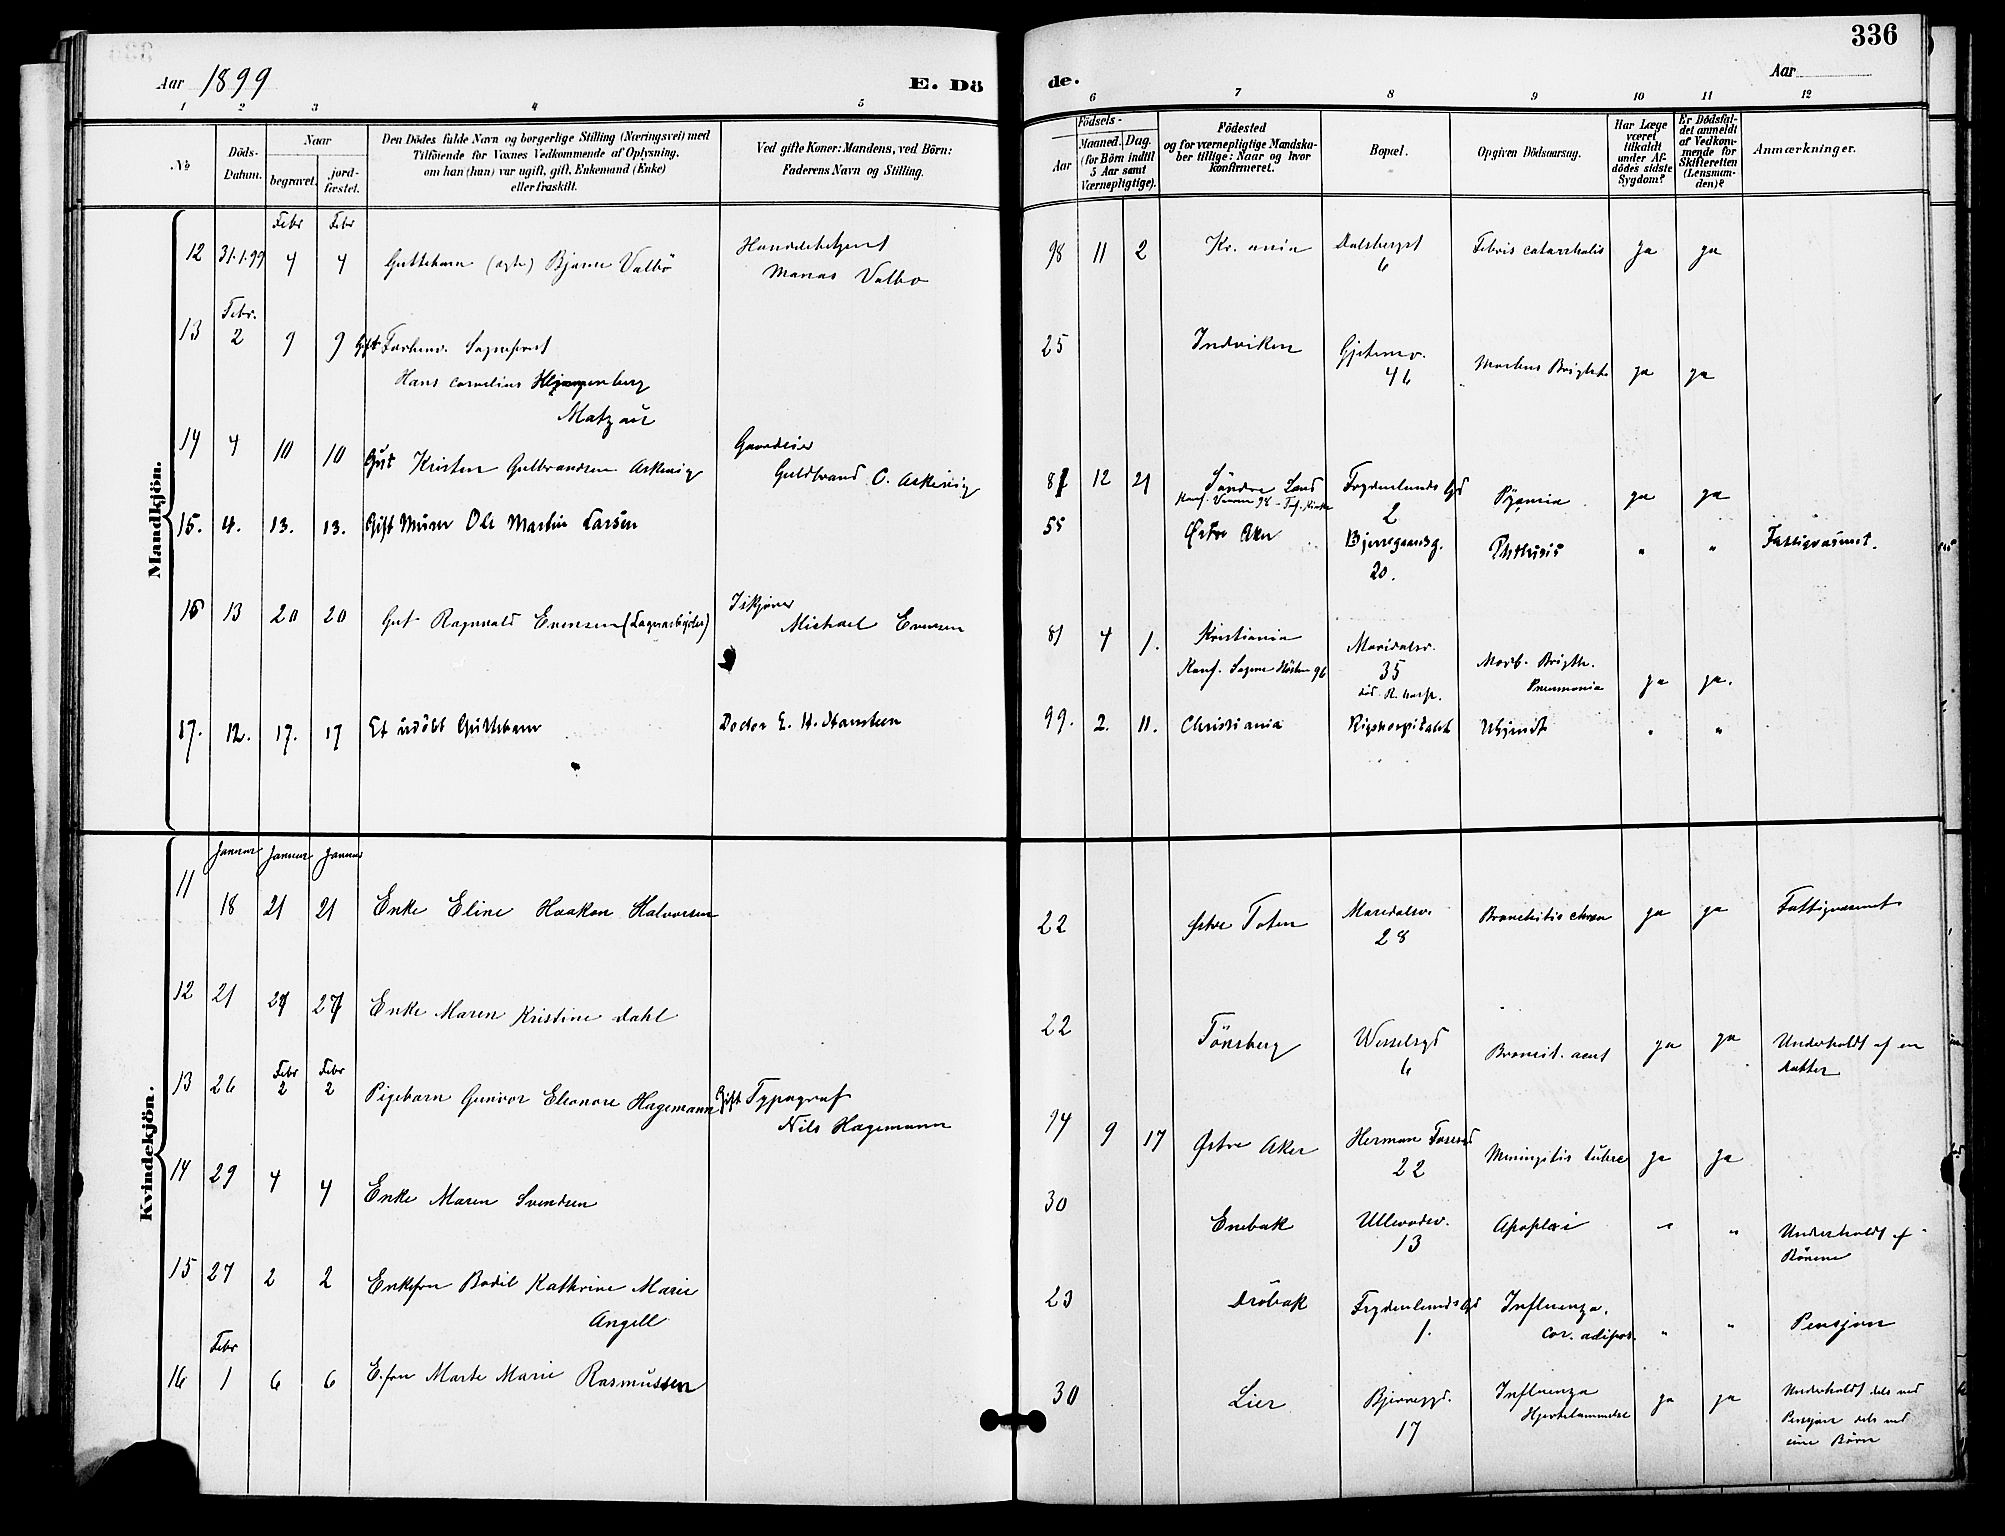 336
Aar 1899
E. Dö
de.
Aar
1 2 3 4 5 6 7 8 9 10 11 12
No
Döds-
Datum.
Naar
begravet.
jord-
fæstet.
Den Dödes fulde Navn og borgerlige Stilling (Næringsvei) med
Tilföiende for Voxnes Vedkommende af Oplysning,
om han (hun) var ugift, gift, Enkemand (Enke)
eller fraskilt.
Ved gifte Koner: Mandens, ved Börn:
Faderens Navn og Stilling.
Födsels-
Aar
Maaned.
Dag.
(for Börn indtil
5 Aar samt
Værnepligtige).
Födested
og for værnepligtige Mandska-
ber tillige: Naar og hvor
konfirmeret.
Bopæl.
Opgiven Dödsaarsag.
Har Læge
været
tilkaldt
under Af-
dödes sidste
Sygdom?
Er Dödsfal-
det anmeldt
af Vedkom-
mende for
Skifteretten
(Lensman-
den)?
Anmærkninger.
Mandkjön.
Febr Febr
12 31.1.99 4 4 Guttebarn (ægte) Bjarne Valbö
Valbo
98 11 2 Kr.ania Dalsbergst
6
Febris catarrhalis ja ja
Febr.
13 2 9 9 Gift Forhenv. Sogneprest
Hans Cornelius
Matzau
25 Indviken
46
Morbus ja ja
14 4 10 10 Gut Kristen Gulbrandsen Askevig
Gaardeier
Guldbrand O. Askevig
81 12 21 Søndre Land
Frydenlunds Gd
2
Pyæmia ja ja
15. 4. 13. 13. Gift Murer Ole Martin Larsen
55 Østre Aker
20.
Phthisis " " Fattigvæsenet.
16 13 20 20 Gut Ragnvald Evensen (Lagerarbeider)
Iskjører
Michael Evensen
81 4 1. Kristiania
Konf. Sagene Hösten 96
Maridalsv.
35
Morb. Brigth.
Pneumonia ja ja.
17. 12. 17. 17 Et udöbt Guttebarn
Doctor E. H. Hansteen
99. 2. 11. Christiania Rigshospitalet Ukjendt " "
Kvindekjön.
Januar Januar Januar
11 18 21 21 Enke Eline Haakon Halvorsen
22 Østre Toten Maridalsv.
28
Bronchitis chron ja ja Fattigvæsenet
12 21 27 27 Enke Maren Kristine Dahl
22 Tönsberg Wesselsgd
6
ja ja Underholdt af en
datter
Febr Febr
13 26 2 2 Pigebarn Gunvor Eleonore Hagemann
Gift Typograf
Nils Hagemann
94 9 17 Østre Aker Herman Fossgd
22
Meningitis tuberc ja ja
14 29 4 4 Enke Maren Svendsen
30 Enebak Ullevoldsv.
13
Apoplexi " " Underholdt af
Börnene
15 27 2 2 Enkefru Bodil Kathrine Marie
Angell
23 Dröbak Frydenlunds Gd
1.
Influenza.
cor. adipos. " " Pensjon
Febr
16 1 6 6 E.fru Marte Marie Rasmussen
30 Lier
17
Influenza
Hjertelammelse ja ja Underholdt dels ved
Pensjon dels ved
sine Börn